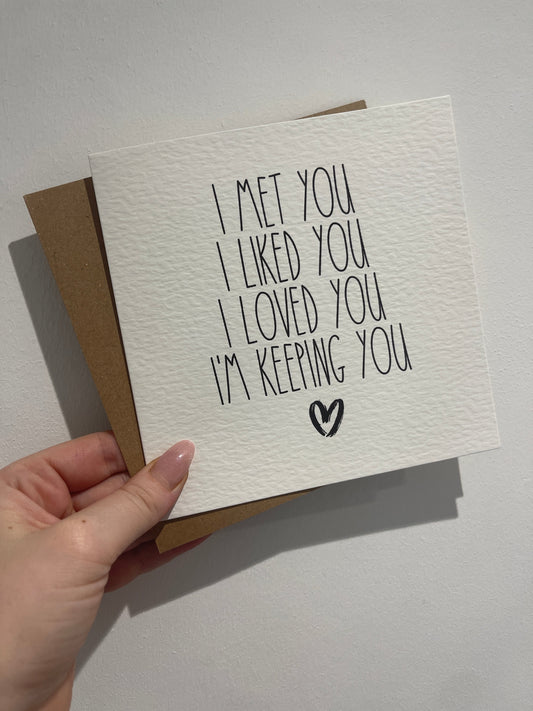 I MET YOU
I LIKED YOU
I LOVED YOU
I'M KEEPING YOU